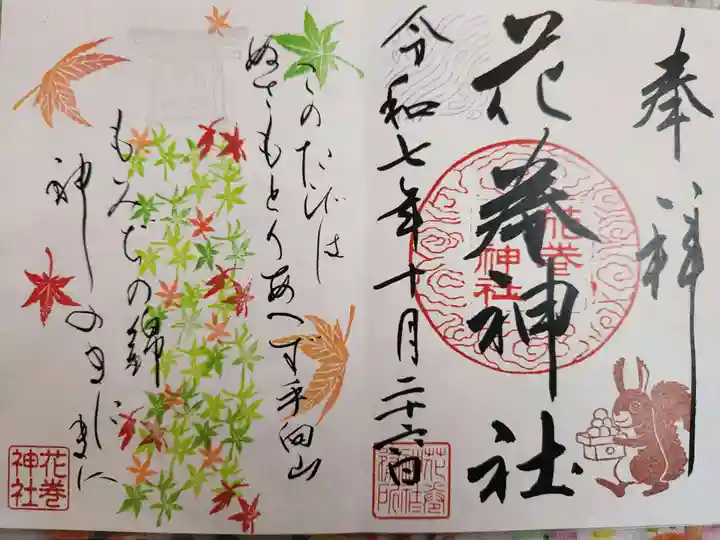 奉拝
花巻神社
花巻
神社
令和七年十月二十六日
花巻
神社
このたびは
ぬさもとりあへず手向山
もみぢの錦
神のまにまに
花巻
神社